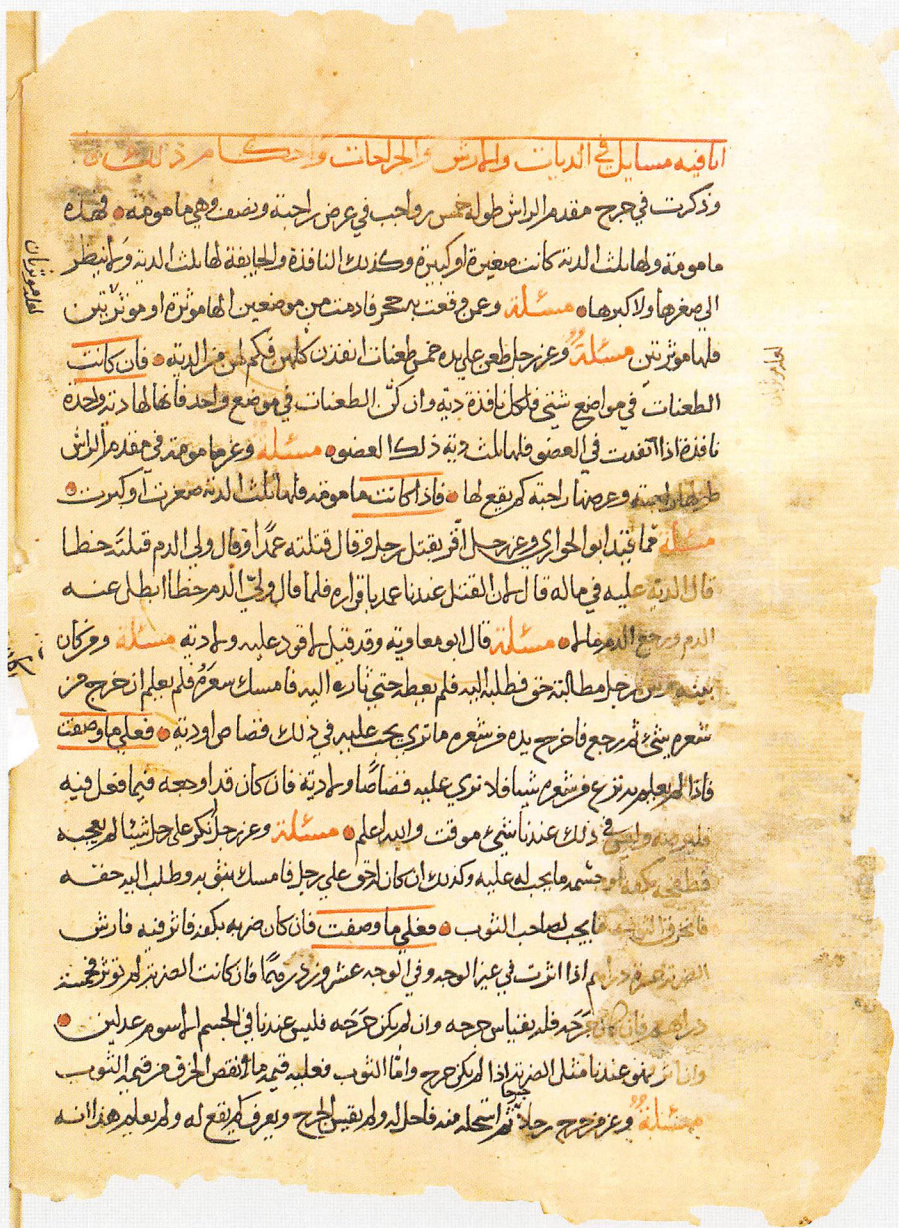 فيه مسايل في الديات والارش والجراحات واحكام ذلك
وذكرت في جرح مقدم الراس طوله خمس رواجب في عرض راجبة ونصف وهي مامومة فهذه
مامومة ولها ثلث الدية كانت صغيرة او كبيرة وكذلك النافذة والجايفة لها ثلث الدية ولا ينظر
الى صغرها ولا كبرها مسئلة وعن وقعت به حجر فادمت من موضعين الها موثرة او موثرتين
فلها موثرتين مسئلة وعن رجل طعن على يده خمس طعنات انفذن كلهن فكم لهن من الدية فان كانت
الطعنات في مواضع شتى فلكل نافذة دية وان كن الطعنات في موضع واحد فانها لها دية واحدة
نافذة اذا انفذت في العضو فلها ثلث دية ذلك العضو مسئلة وعن مامومة في مقدم الراس
طولها راجبة وعرضها راجبة كم يقع لها فاذا كانت مامومة فلها ثلث الدية صغرت او كبرت
مسئلة مما قيد ابو الحواري وعن رجل اقر بقتل رجل وقال قتلته عمدا وقال ولي الدم قتلته خطا
قال الدية عليه في ماله قال لان القتل عندنا عمد باقراره فلما قال ولي الدم خطا ابطل عنه
الدم ورجع الدم مالا مسئلة قال ابو معاوية وقد قيل لا قود عليه ولا دية مسئلة ومن كان
بينه وبين رجل مطالبة حق فطلبه اليه فلم يعطه حتى ثاره اليه فامسك بشعره فلم يعلم ان خرج من
شعره شيء ثم رجع فاخرج يده من شعره ما ترى يجب عليه في ذلك قصاص او دية فعلى ما وصفت
فاذا لم يعلم نزع من شعره شيا فلا نرى عليه قصاصا ولا دية فان كان قد اوجعه فيما فعل فيه
فليرضه وليس في ذلك عندنا شيء موقت والله اعلم مسئلة وعن رجل انكر على رجل شيئا لم يعجبه
ما يجب له عليه وكذلك ان كان له حق على رجل فامسك بثوبه وطلب اليه حقه
فانخرق الثوب ما يجب لصاحب الثوب فعلى ما وصفت فان كان ضربه بكفه فاثر فيه فارش
الضربة عشرة دراهم اذا اثرت في غير الوجه وفي الوجه عشرون درهما فان كانت الضربة لم توثر فخمسة
دراهم فان كان جرحه فله بقياس جرحه وان لم يكن جرحه فليس عندنا في الجسم الا سوم عدلين
عندنا مثل الضربة اذا لم يكن جرح واما الثوب فعليه قيمة ما انقص الخرق من قيمة الثوب
مسئلة وعن من جرح رجلا جرحا ثم استحله منه فاحل له ولم يقس الجرح ويعرف كم يقع له ولم يعلم هذا انه
لعله موثرتان